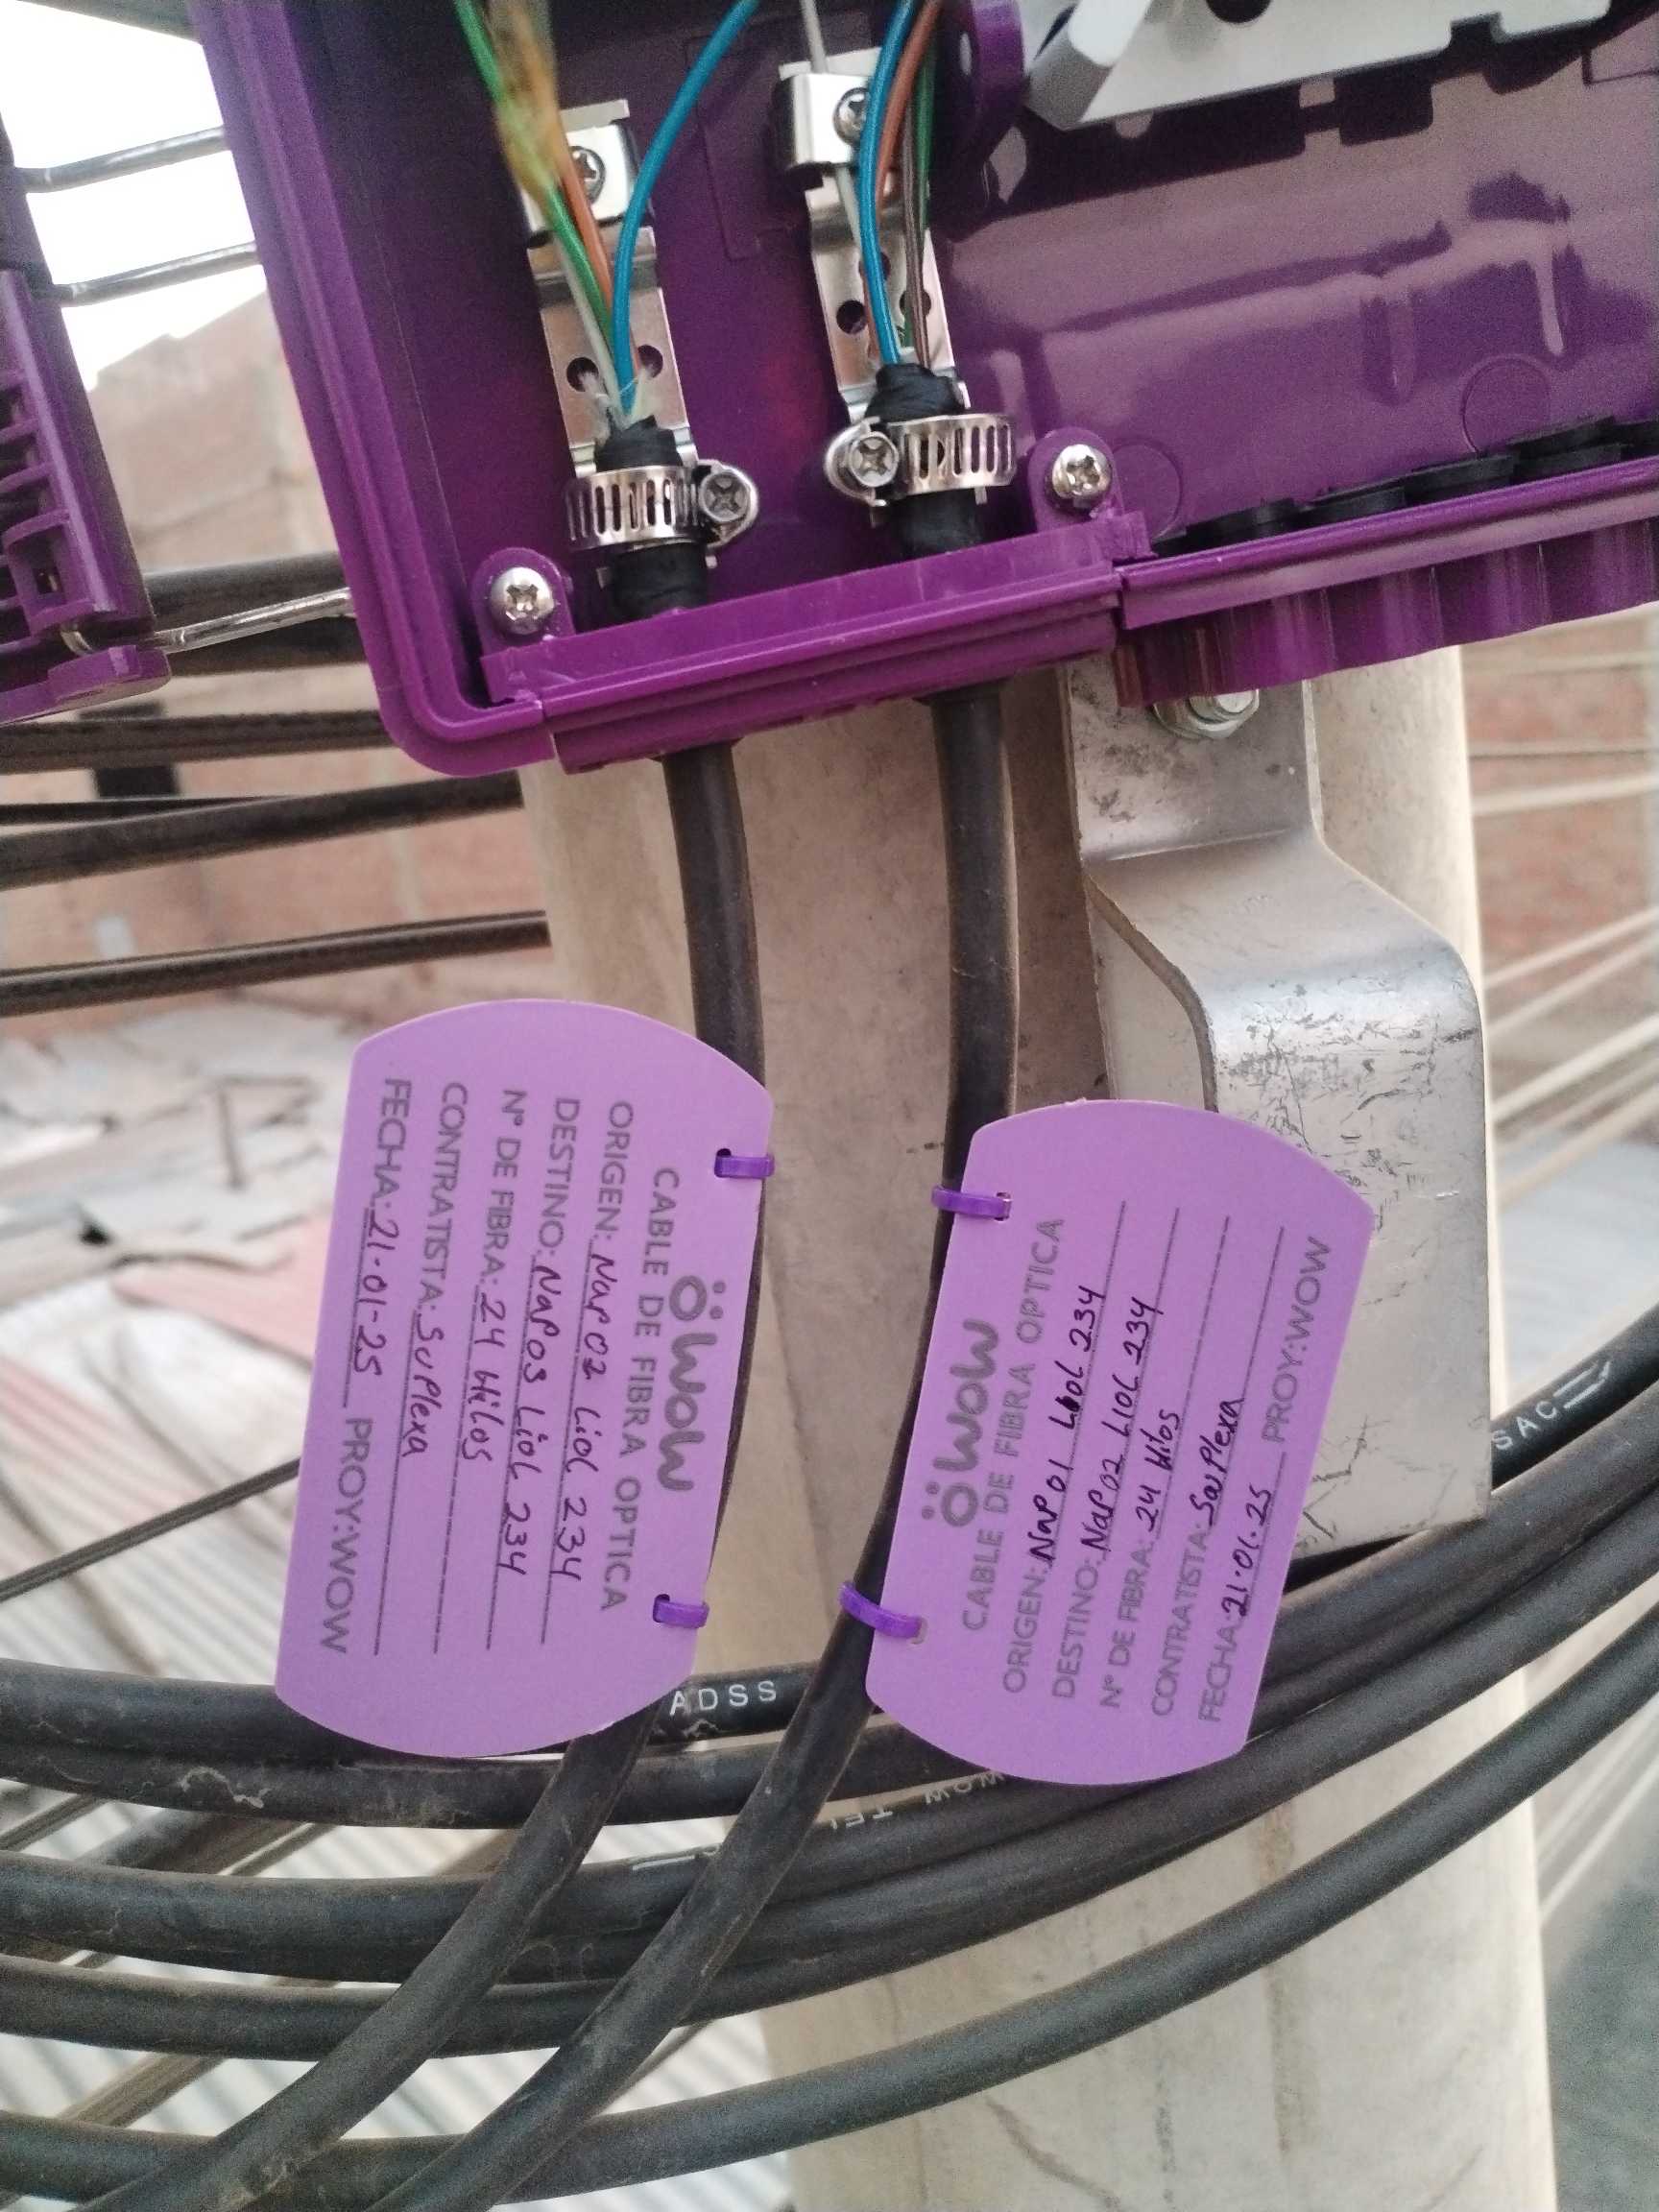 wow
CABLE DE FIBRA OPTICA
ORIGEN: NaP 02 LiOL 234
DESTINO: NaP 03 LiOL 234
N° DE FIBRA: 24 Hilos
CONTRATISTA: SuPlexa
FECHA: 21-01-25 PROY:WOW
wow
CABLE DE FIBRA OPTICA
ORIGEN: NaP 01 LiOL 234
DESTINO: NaP 02 LiOL 234
N° DE FIBRA: 24 Hilos
CONTRATISTA: SuPlexa
FECHA: 21.01.25 PROY:WOW
ADSS
SAC
WOW TEL